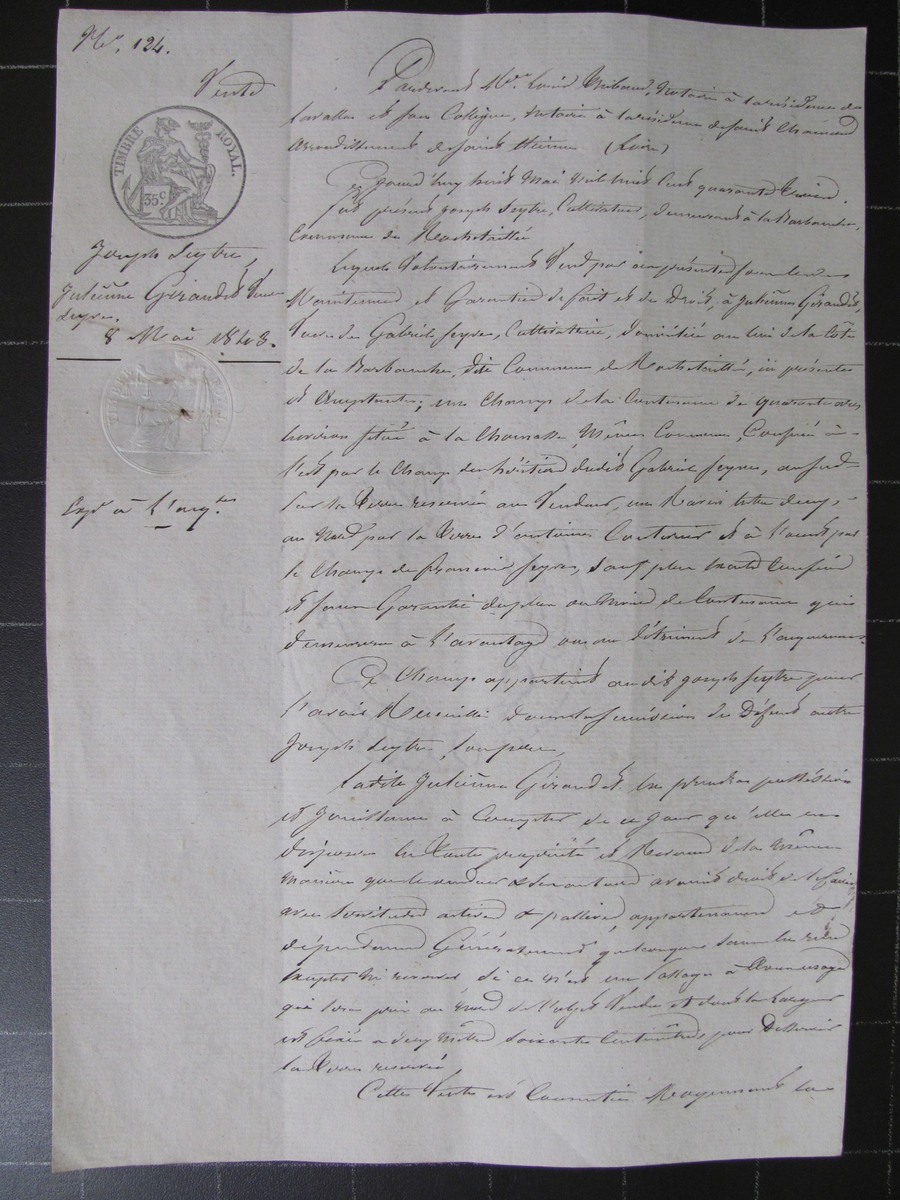 N.º 124.
Vente
TIMBRE ROYAL.
35 c
Joseph Seytre,
Juliènne Giraudet Veuve
Seyve.
8 Mai 1843.
Expon à l'acq.
Pardevant Me. Louis Tribaud, Notaire à la résidence de
Lavalla et son Collègue, Notaire à la résidence de Saint Chamond
Arrondissement de Saint Etienne (Loire)
Ce jourd'huy huit Mai Mil huit Cent quarante trois.
fut présent Joseph Seytre, Cultivateur, demeurant à la Barbanche,
Commune de Rochetaillée
Lequel Volontairement Vend par ces présentes sous les
Maintenue et Garantie de fait et de Droit, à Juliènne Giraudet,
Veuve de Gabriel Seyve, Cultivatrice, domiciliée au lieu de la Côte
de la Barbanche, dite Commune de Rochetaillée, ici présente
et Acceptante; un Champ de la Contenance de quarante ares
environ situé à la Chomasse Même Commune, Confiné à
l'est par le Champ des héritiers dudit Gabriel Seyve, au sud
par la Terre reservée au Vendeur, un Ravin entre deux,
au Nord par la Terre d'antoine Couturier et à l'ouest par
le Champ de francois Seyve, sauf plus exacts Confins
et sans Garantie du plus ou Moins de Contenance qui
demeurera à l'avantage ou au détriment de l'acquereuse.
Ce Champ appartient audit Joseph Seytre pour
l'avoir Recueilli dans la succession de Défunt autre
Joseph Seytre, son père,
Ladite Juliènne Giraudet en prendra possession
et Jouissance à Compter de ce Jour qu'elle en
disposera en toute propriété et Revenus de la Même
Manière que le vendeur & ses auteurs avaient droit de le faire
avec servitudes actives & passives, appartenances et
dépendances Généralement quelconques sans en rien
excepter ni reserver Si ce n'est un Passage à tous usages
qui sera pris au Nord de l'objet Vendu et dont la largeur
est fixée à deux Mètres soixante Centimètres, pour Desservir
la Terre reservée
Cette Vente est Consentie Moyennant la